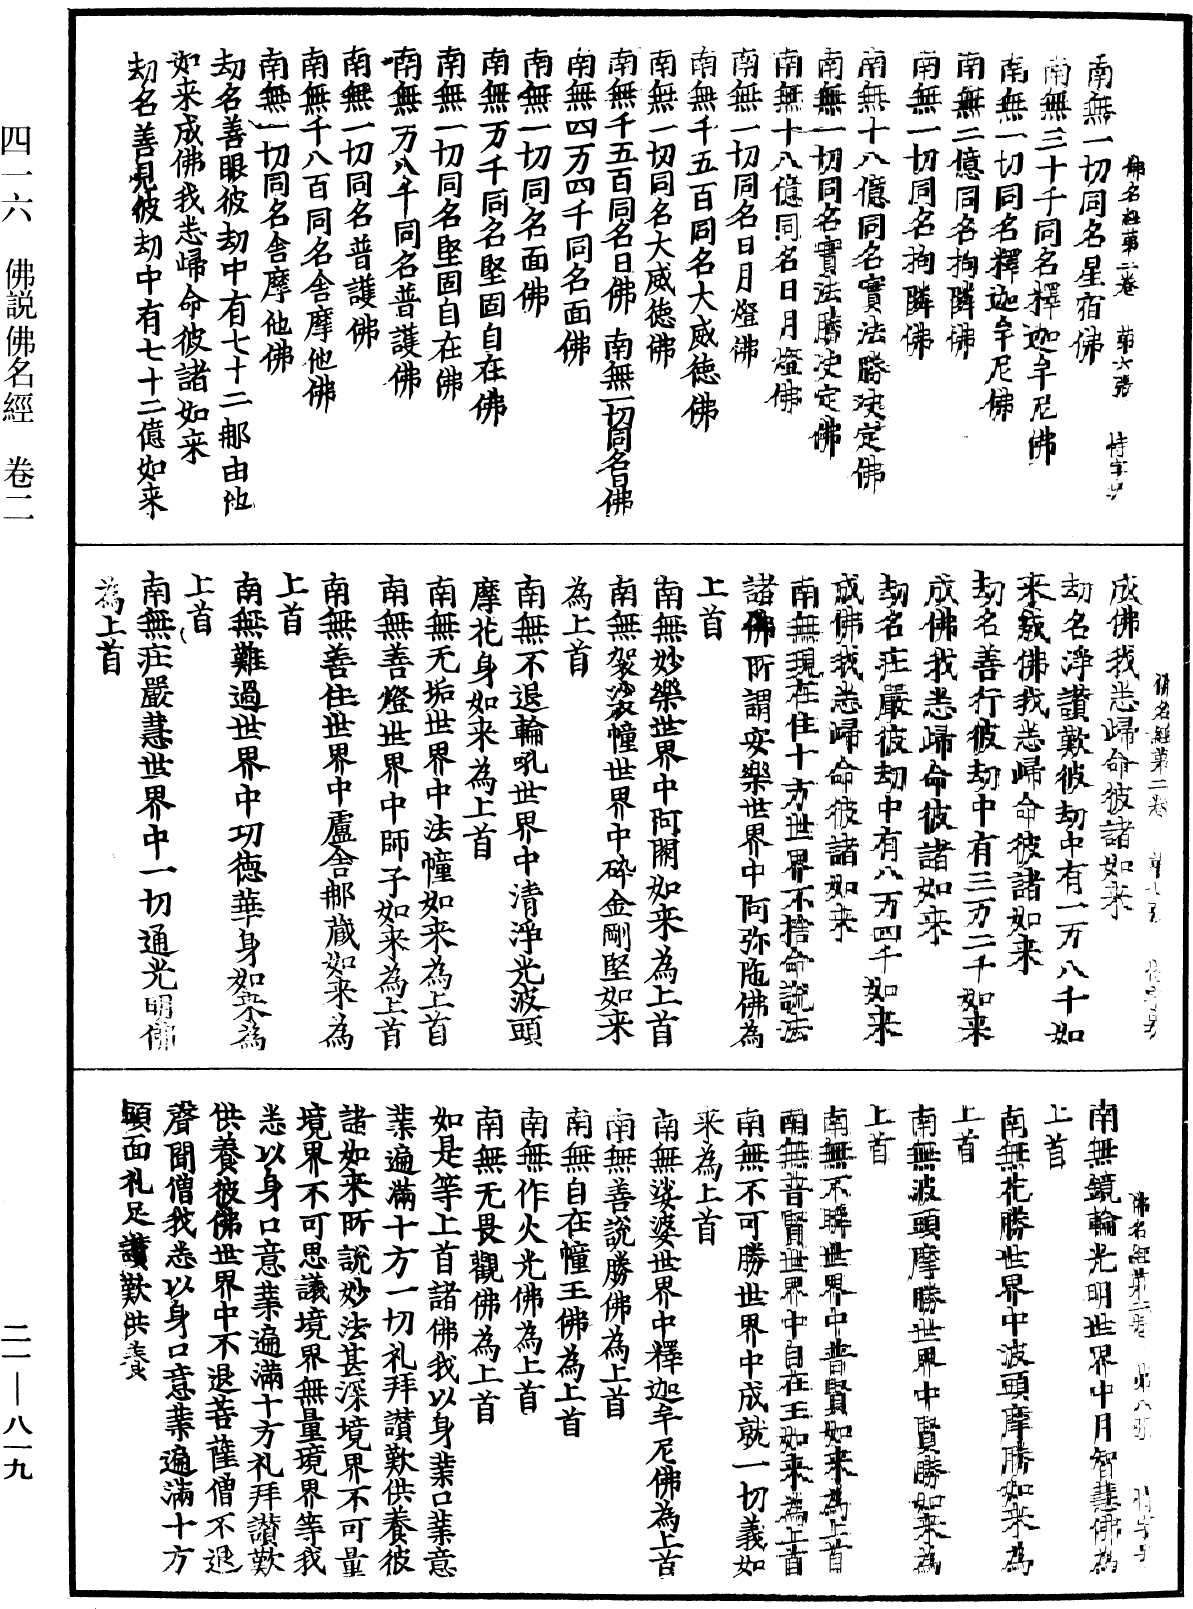 四一六　佛説佛名經　卷二
二一—八一九
佛名經第二卷　第六張　恃字号
南無一切同名星宿佛
南無三十千同名釋迦牟尼佛
南無一切同名釋迦牟尼佛
南無二億同名拘隣佛
南無一切同名拘隣佛
南無十八億同名實法勝决定佛
南無一切同名實法勝决定佛
南無十八億同名日月燈佛
南無一切同名日月燈佛
南無千五百同名大威德佛
南無一切同名大威德佛
南無千五百同名日佛　南無一切同名日佛
南無四万四千同名面佛
南無一切同名面佛
南無万千同名堅固自在佛
南無一切同名堅固自在佛
南無万八千同名普護佛
南無一切同名普護佛
南無千八百同名舍摩他佛
南無一切同名舍摩他佛
劫名善眼彼劫中有七十二那由他
如来成佛我悉歸命彼諸如来
劫名善見彼劫中有七十二億如来
佛名經第二卷　第七張
成佛我悉歸命彼諸如来
劫名淨讃歎彼劫中有一万八千如
来成佛我悉歸命彼諸如来
劫名善行彼劫中有三万二千如来
成佛我悉歸命彼諸如来
劫名庄嚴彼劫中有八万四千如来
成佛我悉歸命彼諸如来
南無現在住十方世界不捨命說法
諸佛所謂安樂世界中阿弥陁佛為
上首
南無妙樂世界中阿閦如来為上首
南無袈裟幢世界中碎金剛堅如来
為上首
南無不退輪吼世界中清淨光波頭
摩花身如来為上首
南無无垢世界中法幢如来為上首
南無善燈世界中師子如来為上首
南無善住世界中盧舍那藏如来為
上首
南無難過世界中功德華身如来為
上首
南無庄嚴慧世界中一切通光明佛
為上首
佛名經第二卷　第八張
南無鏡輪光明世界中月智慧佛為
上首
南無花勝世界中波頭摩勝如来為
上首
南無波頭摩勝世界中賢勝如来為
上首
南無不瞬世界中普賢如来為上首
南無普賢世界中自在王如来為上首
南無不可勝世界中成就一切義如
来為上首
南無娑婆世界中釋迦牟尼佛為上首
南無善說勝佛為上首
南無自在幢王佛為上首
南無作火光佛為上首
南無无畏觀佛為上首
如是等上首諸佛我以身業口業意
業遍滿十方一切礼拜讃歎供養彼
諸如来所說妙法甚深境界不可量
境界不可思議境界無量境界等我
悉以身口意業遍滿十方礼拜讃歎
供養彼佛世界中不退菩薩僧不退
聲聞僧我悉以身口意業遍滿十方
頭面礼足讃歎供養